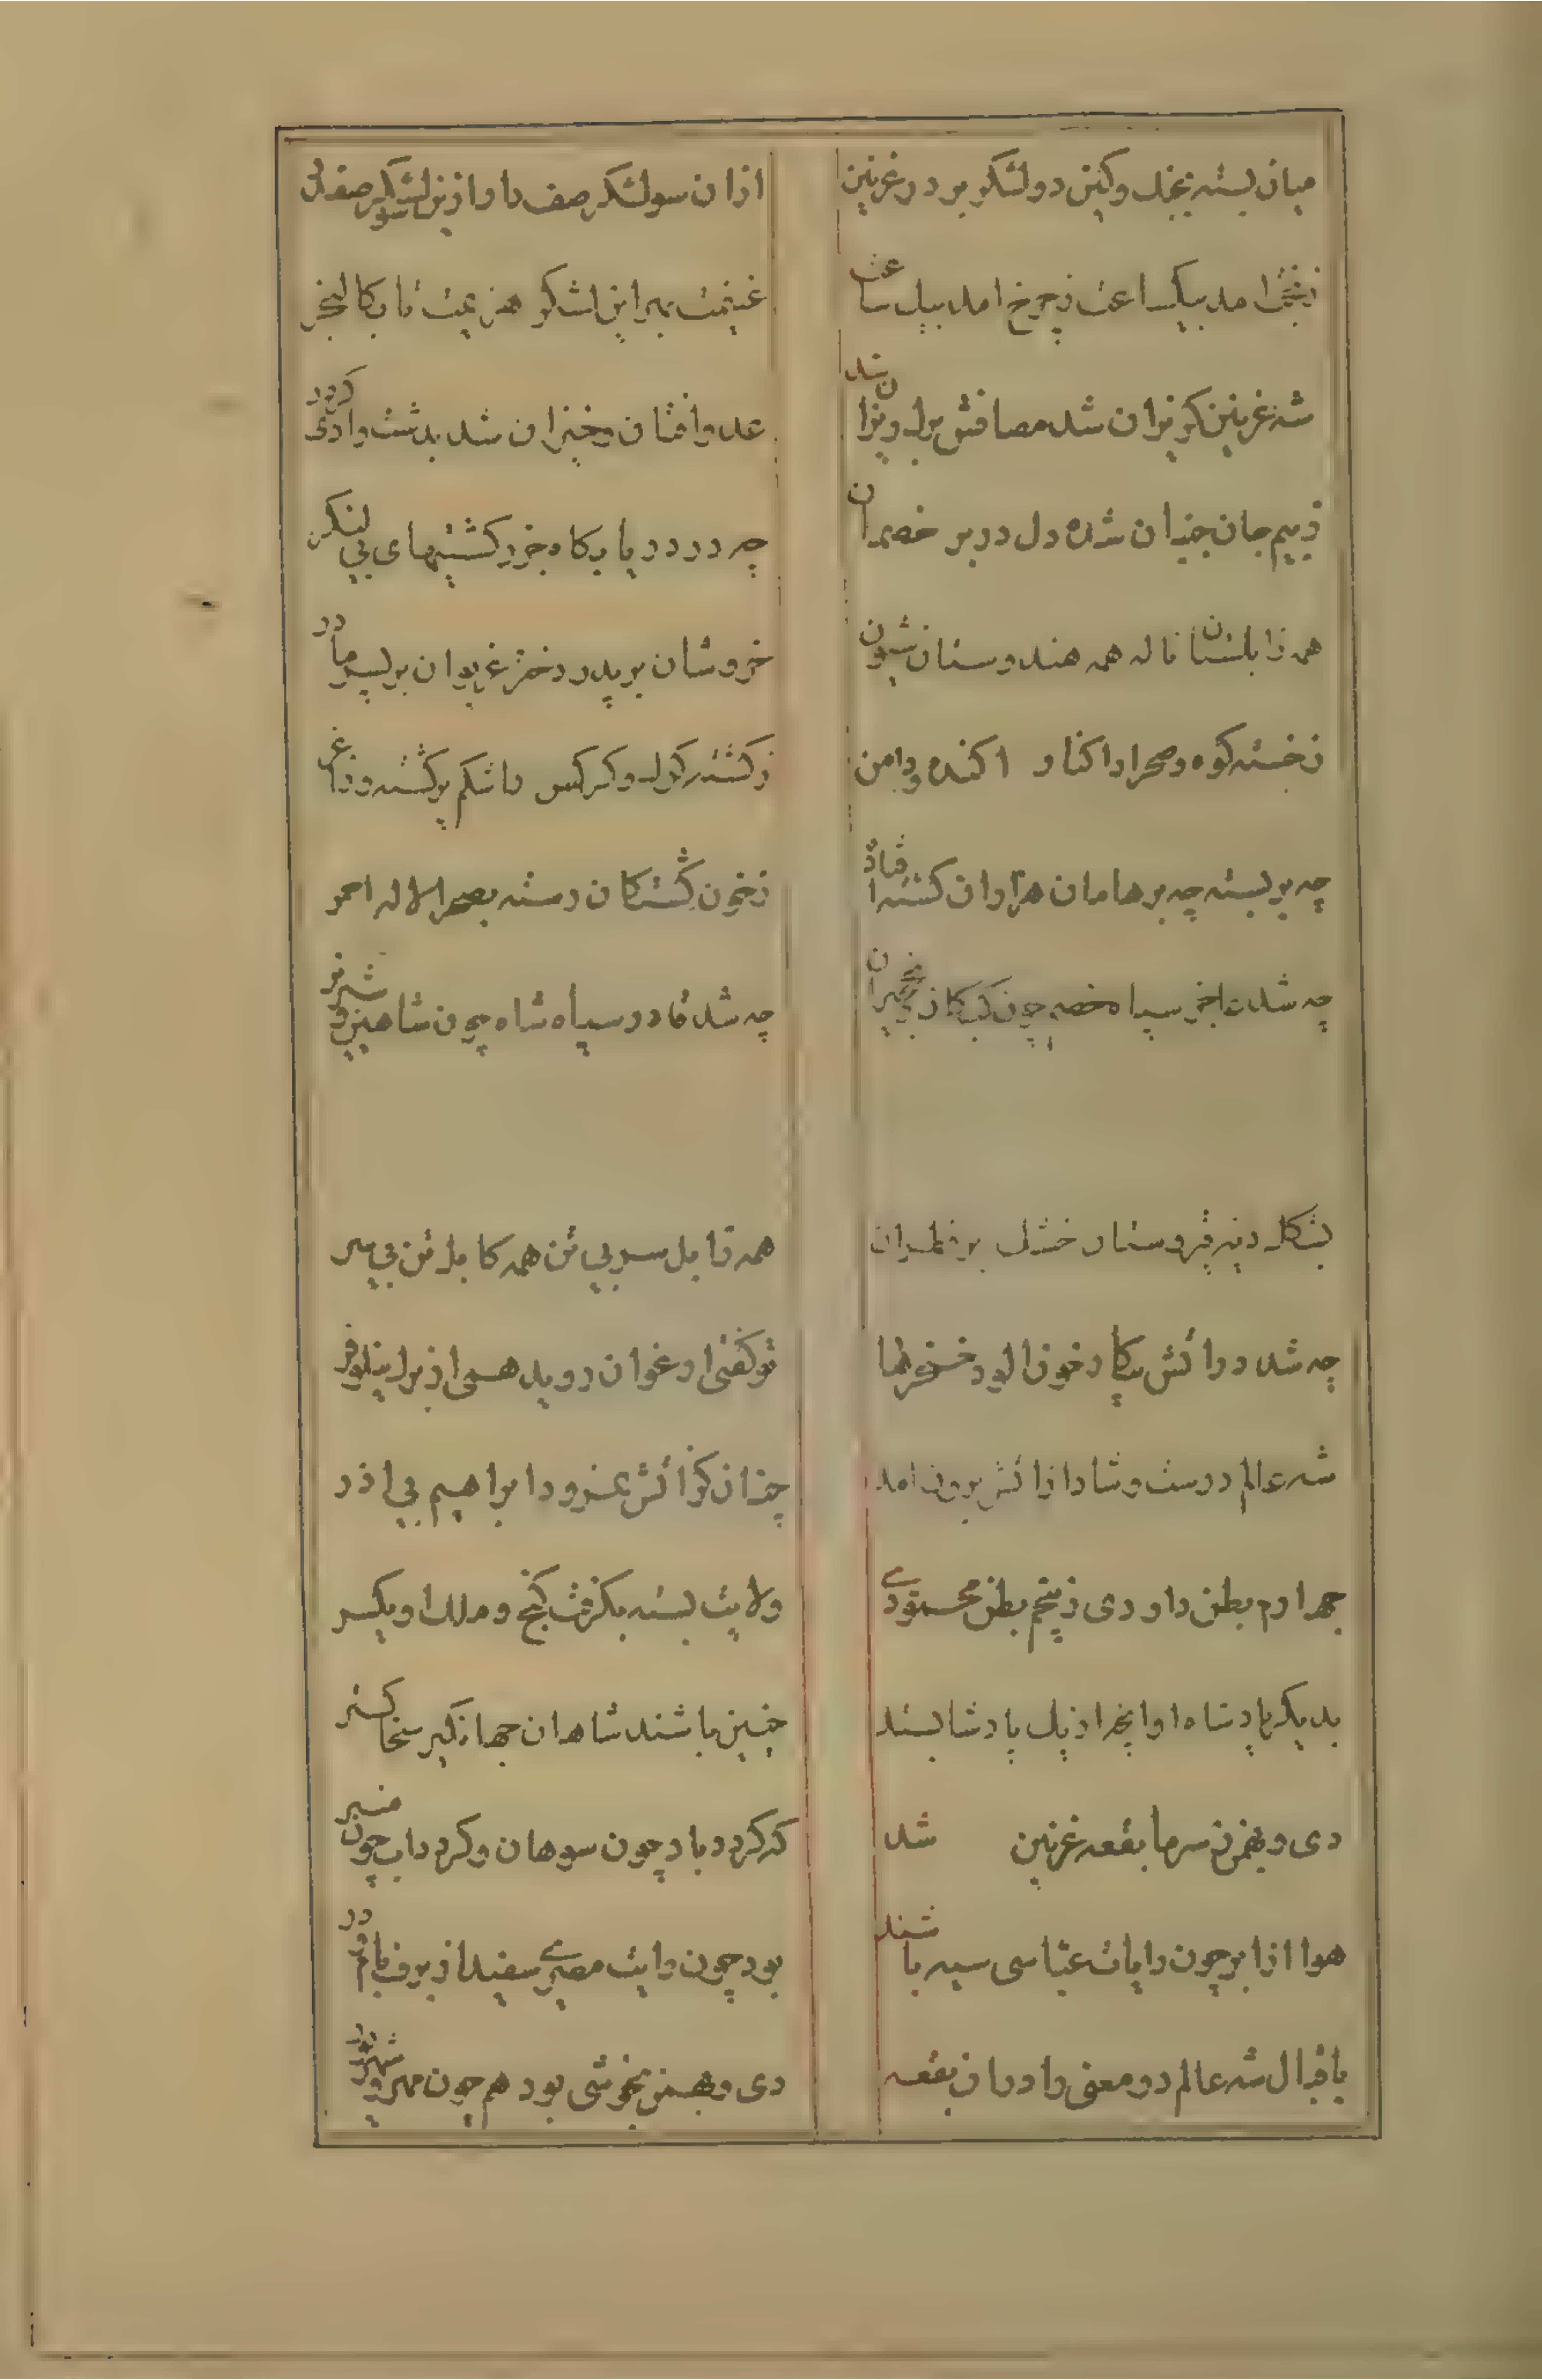 میان بسته بجنک وکین دو لشکر بر در غزنین
ازان سو لشکر صف دا وازین سو لشکر صف
زبخت امد بیکساعت ز چرخ امد بیک ساعت
غنیمت بهر این لشکر هزیمت تا بکالنجر
شه غزنین کریزان شد مصافش برک ریزان شد
عدو افتان و خیزان شد بدشت وادی کردر
ز بیم جان خیزان شده دل در بر خصمان
چه در دریا بکاه جزر کشتیهای بی لنکر
همه زابلستان ناله همه هندوستان شیون
خروشان بر پدر دختر غریوان بر پسر مادر
زخسته کوه و صحرا را کنار اکنده و دامن
ز کشته کرک و کرکس را شکم پر کشته و زاغر
چه بر بسته چه برهامان هزاران کشته افتاد
ز خون کشتکان رسته بصحرا لاله احمر
چه شد عاجز سپاه خصم چون کبکان نخجیران
چه شد قادر سپاه شاه چون شاهین و شیر نر
بشکل دنبه
همه زابل سر بی تن همه کابل تن بی سر
چه شد در اتش پیکار خون الود خنجرها
تو کفتی ارغوان روید همی از برک نیلوفر
شه عالم درست و شاد از اتش برون امد
چنان کز اتش نمرود ابراهیم بن اذر
چهارم بطن داودی ز پنجم بطن محمودی
ولایت بسته بکرفت کنج و ملک او یکسر
بدیکر پادشاه اوانچرا از یک پادشا بستد
چنین باشند شاهان جهانکیر سخاکستر
دی و بهمن ز سرما بقعه غزنین شد
که کردد باد چون سوهان و کردد اب چون
هوا از ابر چون رایات عباسی سیه باشند
بود چون رایت مصری سفید از برف بام و در
باقبال شه عالم دو معنی را دران بقعه
دی و بهمن بخوشی بود هم چون مهر و شهریور